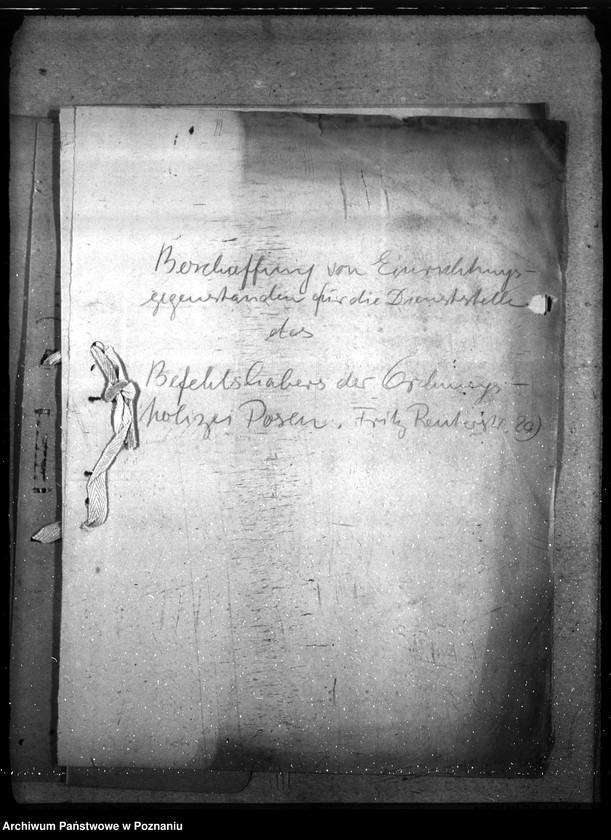 Beschaffung von Einrichtungs-
gegenständen für die Dienststelle
des
Befehlshabers der Ordnungs-
polizei Posen. Fritz Reuterstr. 2a)
Archiwum Państwowe w Poznaniu